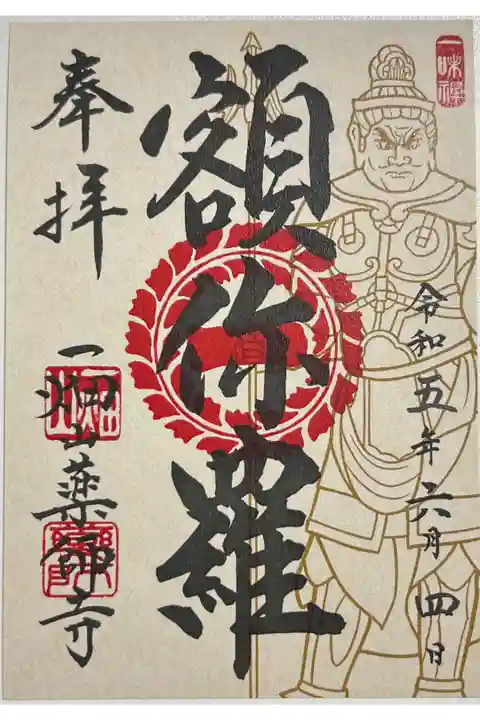 一味禅
令和五年六月四日
額你羅
奉拝
一畑山薬師寺